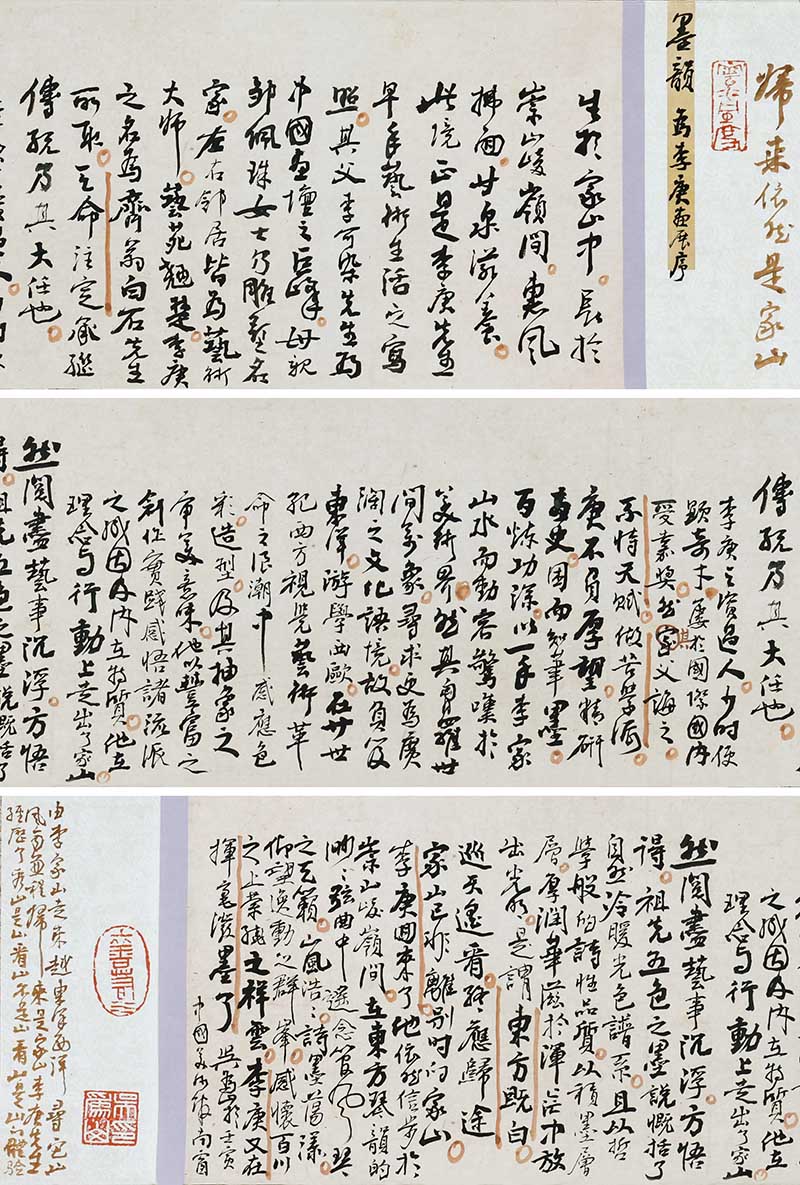 歸來依然是家山
墨韻 為李庚畫展序
生於家山中。長於
崇山峻嶺間。惠風
拂面。甘泉滋養。
此境正是李庚先生
早年藝術生活之寫
照。其父李可染先生爲
中國畫壇之巨峰。母親
鄒佩珠女士乃雕塑名
家。左右鄰居皆爲藝術
大師。藝苑翹楚。李庚
之名爲齊翁白石先生
所取。天命注定承繼
傳統乃其大任也。
傳統乃其大任也。
李庚之資過人。少時便
顯奇才。屢於國際國內
受嘉獎。然其家父誨之
不恃天賦。做苦學派。
庚不負厚望。精研
畫史。固而知筆墨。
百煉功深。以一手李家
山水而動容驚嘆於
美術界。然其胸羅世
間萬象。尋求更爲廣
闊之文化語境。故負笈
東洋。游學西歐。在廿世
紀西方視覺藝術革
命之浪潮中。感應色
彩造型及其抽象之
審美意味。他以豐富之
創作實踐感悟諸流派
之成因及內在特質。他在
理念与行動上走出了家山
然閱盡藝事沉浮。方悟
得。祖先五色之墨説既括了
之成因及內在特質。他在
理念与行動上走出了家山
然閱盡藝事沉浮。方悟
得。祖先五色之墨説概括了
自然冷暖光色譜系。且以哲
學般的詩性品質。以積墨層
層厚潤華滋於渾沌中放
出光明。是謂東方既白。
巡天遙看。終應歸途
家山已非離別時的家山
李庚回來了。他依然信步於
崇山峻嶺間。在東方琴韻的
弦曲中
之天籟。山風浩浩。詩墨蕩漾。
仰望逸動之群峯。感懷百川
之上縈繞之祥雲。李庚又在
揮毫潑墨了。吳爲山於壬寅
中國美術館南窗
由李家山走來越東洋西洋尋它山
風雨兼程歸來是家山李庚先生
經歷了看山是山看山不是山看山是山的體驗